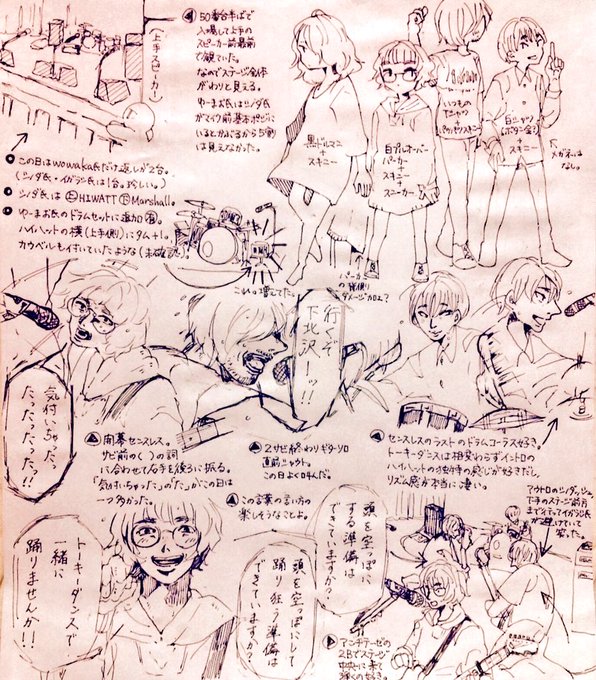 50番台半ばで
入場して上手の
スピーカー前最前
で観ていた。
なのでステージ全体
がわりと見える。
ゆーまお氏はシノダ氏
がマイク前基本ポジに
いるとかぶるから5割
は見えなかった。
(上手スピーカー)
黒ドルマン
+
スキニー
白プルオーバー
パーカー
+
スキニー
+
スニーカー
いつもの
Tシャツ
+
スキニー
白シャツ
(ボタン全〆)
+
スキニー
メガネは
なし。
パーカー
の後側
ダメージ加工?
この日はwowaka氏だけ返しが2台。
(シノダ氏・イガラシ氏は1台。珍しい。)
シノダ氏は上HIWATT下Marshall。
ゆーまお氏のドラムセットに追加有。
ハイハットの横(上手側)にタム+1。
カウベルも付いていたような(未確認)。
これ。増えてた。
行くぞ
下北沢ーッ!!
気付いちゃった
たったったったっ!!
開幕センスレス。
サビ前のく〉の詞
に合わせて右手を後ろに振る。
「気付いちゃった」の「た」がこの日は
一つ多かった。
2サビ終わりギターソロ
直前シャウト。
この日よく叫んだ。
センスレスのラストのドラムコーラス好き。
トーキーダンスは相変わらずイントロの
ハイハットの独特の感じが好きだし、
リズム感が本当に凄い。
この言葉の言い方の
楽しそうなことよ。
頭を空っぽに
する準備は
できていますか?
頭を空っぽにして
踊り狂う準備は
できていますか?
トーキーダンスで
一緒に
踊りませんか!!
アウトロのシノダッシュ。
下手のステージ前方
まで行ってイガラシ氏
が避けていて
笑った。
アンチテーゼの
2Bでステージ
中央に来て
弾くの好き。